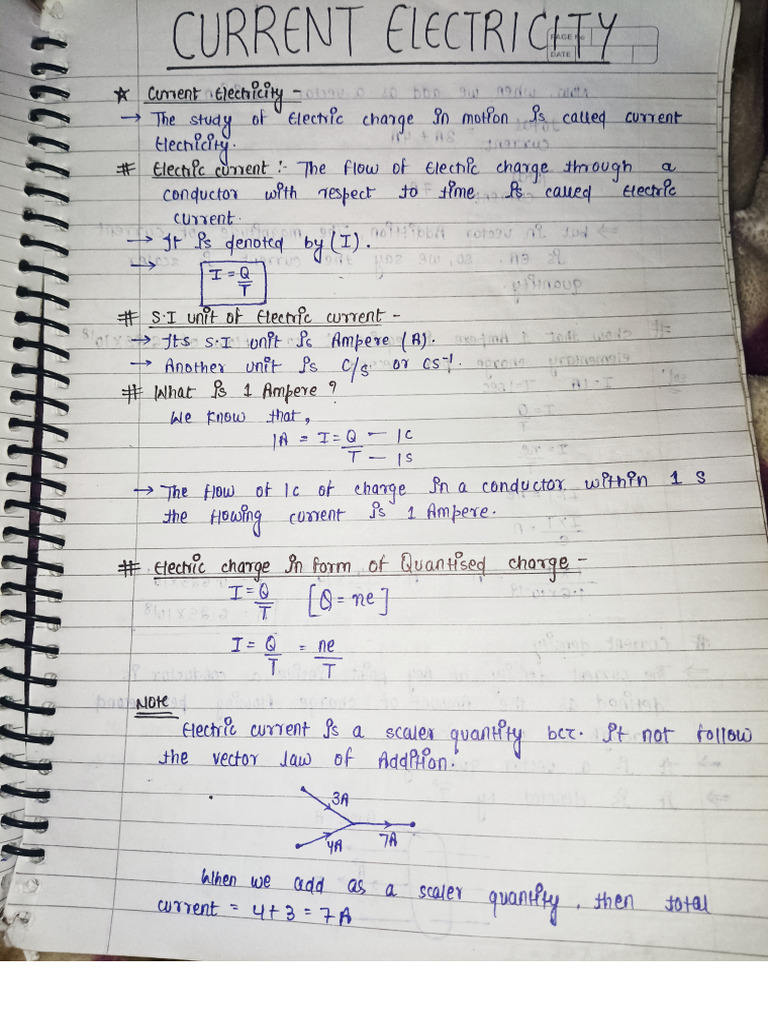 CURRENT ELECTRICITY
PAGE No
DATE
☆ Current Electricity -
→ The study of Electric charge in motion is called current
Electricity.
# Electric current :- The flow of Electric charge through a
conductor with respect to time is called Electric
current.
→ It is denoted by (I).
→ I = Q/T
# S.I unit of Electric current -
→ Its S.I unit is Ampere (A).
→ Another unit is C/s or CS⁻¹.
# What is 1 Ampere ?
We know that,
1A = I = Q/T - 1C
- 1S
→ The flow of 1C of charge in a conductor within 1 S
the flowing current is 1 Ampere.
# Electric charge in form of Quantised charge -
I = Q/T [Q = ne]
I = Q/T = ne/T
NOTE
Electric current is a scaler quantity bcz. it not follow
the vector law of Addition.
3A
4A 7A
When we add as a scaler quantity, then total
current = 4+3 = 7A